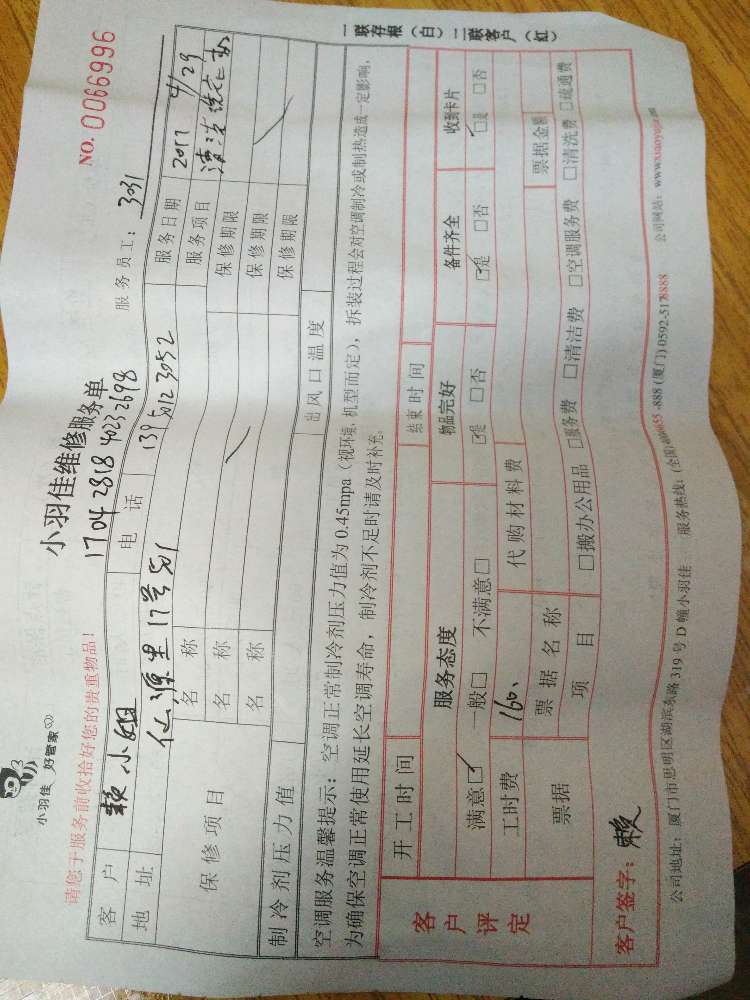 小羽佳 好管家
小羽佳维修服务单
NO. 0066996
请您于服务前收拾好您的贵重物品!
17042818 40232698
服务员工: 3031
客户 赖小姐 电话 13950123052 服务日期 2017 4/29
地址 仙源里17号501 服务项目 清洗
保修项目 名称 保修期限
名称 保修期限
名称 保修期限
制冷剂压力值 出风口温度
空调服务温馨提示: 空调正常制冷剂压力值为0.45mpa (视环境、机型而定), 拆装过程会对空调制冷或制热造成一定影响,
为确保空调正常使用延长空调寿命, 制冷剂不足时请及时补充。
客户评定
开工时间 结束时间
服务态度 物品完好 备件齐全 收到卡片
满意☑ 一般□ 不满意□ ☑是 □否 ☑是 □否 ☑是 □否
工时费 160、 代购材料费
票据 票据名称 票据金额
项目 □搬办公用品 □服务费 □清洁费 □空调服务费 □清洗费 □疏通费
客户签字: 赖
公司地址: 厦门市思明区湖滨东路319号D幢小羽佳 服务热线: (全国) -888 (厦门) 0592-5178888 公司网站:
一联存根 (白) 二联客户 (红)